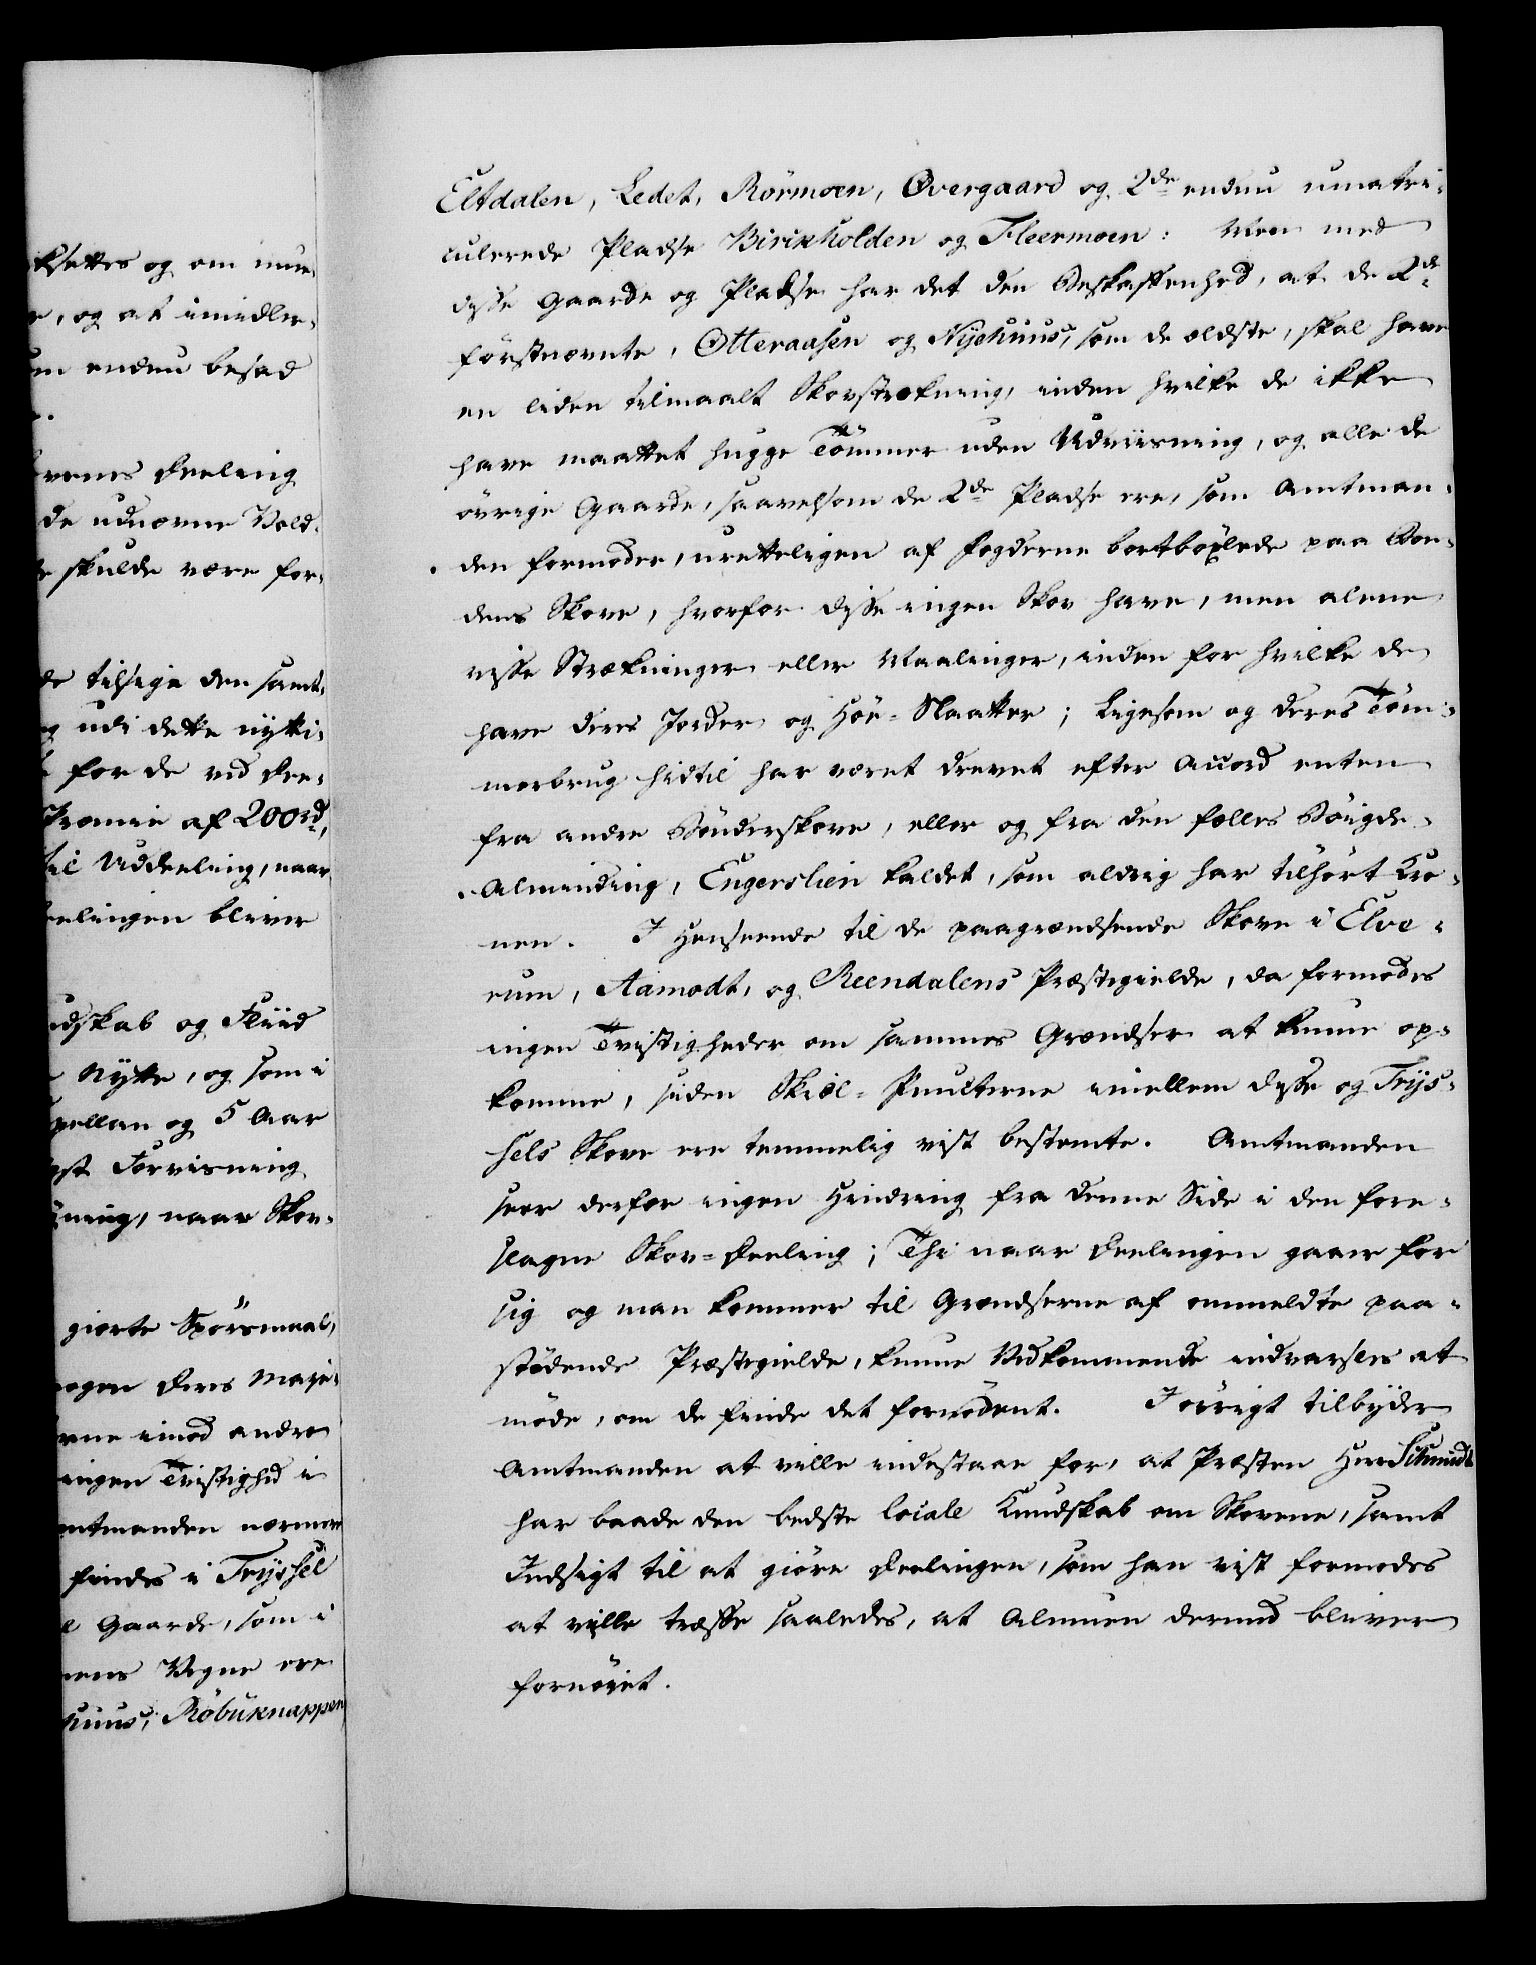 ksattes og om mue-
r, og at imidler-
um endnu besad
e.
vens Deeling
de udnævne Vold-
e skulde være for-
de tilsige den samt-
g udi dette nytti-
for de ved Dee-
Præmie af 200rd,
til Uddeeling, naar
eelingen bliver
ndskab og Fliid
Nytte, og som i
pellan og 5 Aar
gst Forvisning
ning, naar Skov-
giorte Spörsmaal,
nogen Deres Maje-
rne imod andre
ingen Tvistighed i
mtmanden nærmere
findes i Tryssel
e Gaarde, som i
nens Vegne ere
huus, Röbuknappen
Eltdalen, Ledet, Rörmoen, Overgaard og 2de endnu umatri-
culerede Pladse Birikholden og Fleermoen: Men med
disse Gaarde og Pladse har det den Beskaffenhed, at de 2de
förstnævnte, Otteraasen og Nyehuus, som de ældste, skal have
en liden tilmaalt Skovstrækning, inden hvilke de ikke
have maattet hugge Tömmer uden Udviisning, og alle de
övrige Gaarde, saavelsom de 2de Pladse ere, som Amtman-
den formoder, uretteligen af Fogderne bortböxlede paa Bon-
dens Skove, hvorfor disse ingen Skov have, men alene
visse Strækninger eller Maalinger, inden for hvilke de
have deres Jorder og Höe-Slaatter; Ligesom og deres Töm-
merbrug hidtil har været drevet efter Accord enten
fra andre Bönderskove, eller og fra den fælles Böigde-
Alminding, Engerslien kaldet, som aldrig har tilhört Kro-
nen. I Henseende til de paagrændsende Skove i Elve-
rum, Aamodt, og Reendalens Præstegielde, da formodes
ingen Tvistigheder om sammes Grændser at kunne op-
komme, siden Skiel-Puncterne imellem disse og Trys-
sels Skove ere temmelig vist bestemte. Amtmanden
seer derfor ingen Hindring fra denne Side i den fore-
slagne Skov-Deeling; Thi naar Deelingen gaaer for
sig og man kommer til Grændserne af ommeldte paa-
stødende Præstegielde, kunne Vedkommende indvarsles at
möde, om de finde det fornödent. I övrigt tilbyder
Amtmanden at ville indestaae for, at Præsten Herr Schmidt
har baade den bedste locale Kundskab om Skovene, samt
Indsigt til at giöre Deelingen, som han vist formodes
at ville træffe saaledes, at Almuen dermed bliver
fornöiet.